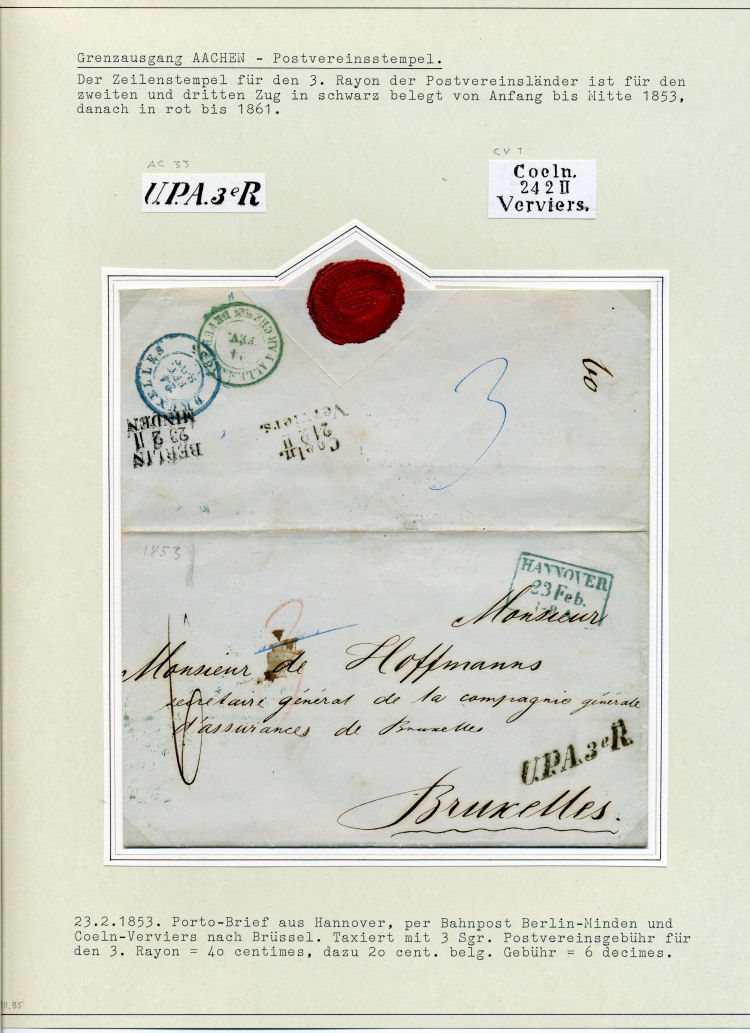 Grenzausgang AACHEN - Postvereinsstempel.
Der Zeilenstempel für den 3. Rayon der Postvereinsländer ist für den
zweiten und dritten Zug in schwarz belegt von Anfang bis Mitte 1853,
danach in rot bis 1861.
AC 33
U.P.A.3eR
CV I
Coeln.
242 II
Verviers.
BRUXELLES
BERLIN
23 2 II
MINDEN
Coeln.
II
Verviers.
3
60
1853
HANNOVER
23 Feb.
Monsieur
Monsieur de Hoffmanns
secretaire général de la compagnie générale
d'assurances de Bruxelles
6
U.P.A.3eR.
Bruxelles.
23.2.1853. Porto-Brief aus Hannover, per Bahnpost Berlin-Minden und
Coeln-Verviers nach Brüssel. Taxiert mit 3 Sgr. Postvereinsgebühr für
den 3. Rayon = 40 centimes, dazu 20 cent. belg. Gebühr = 6 decimes.
III.85